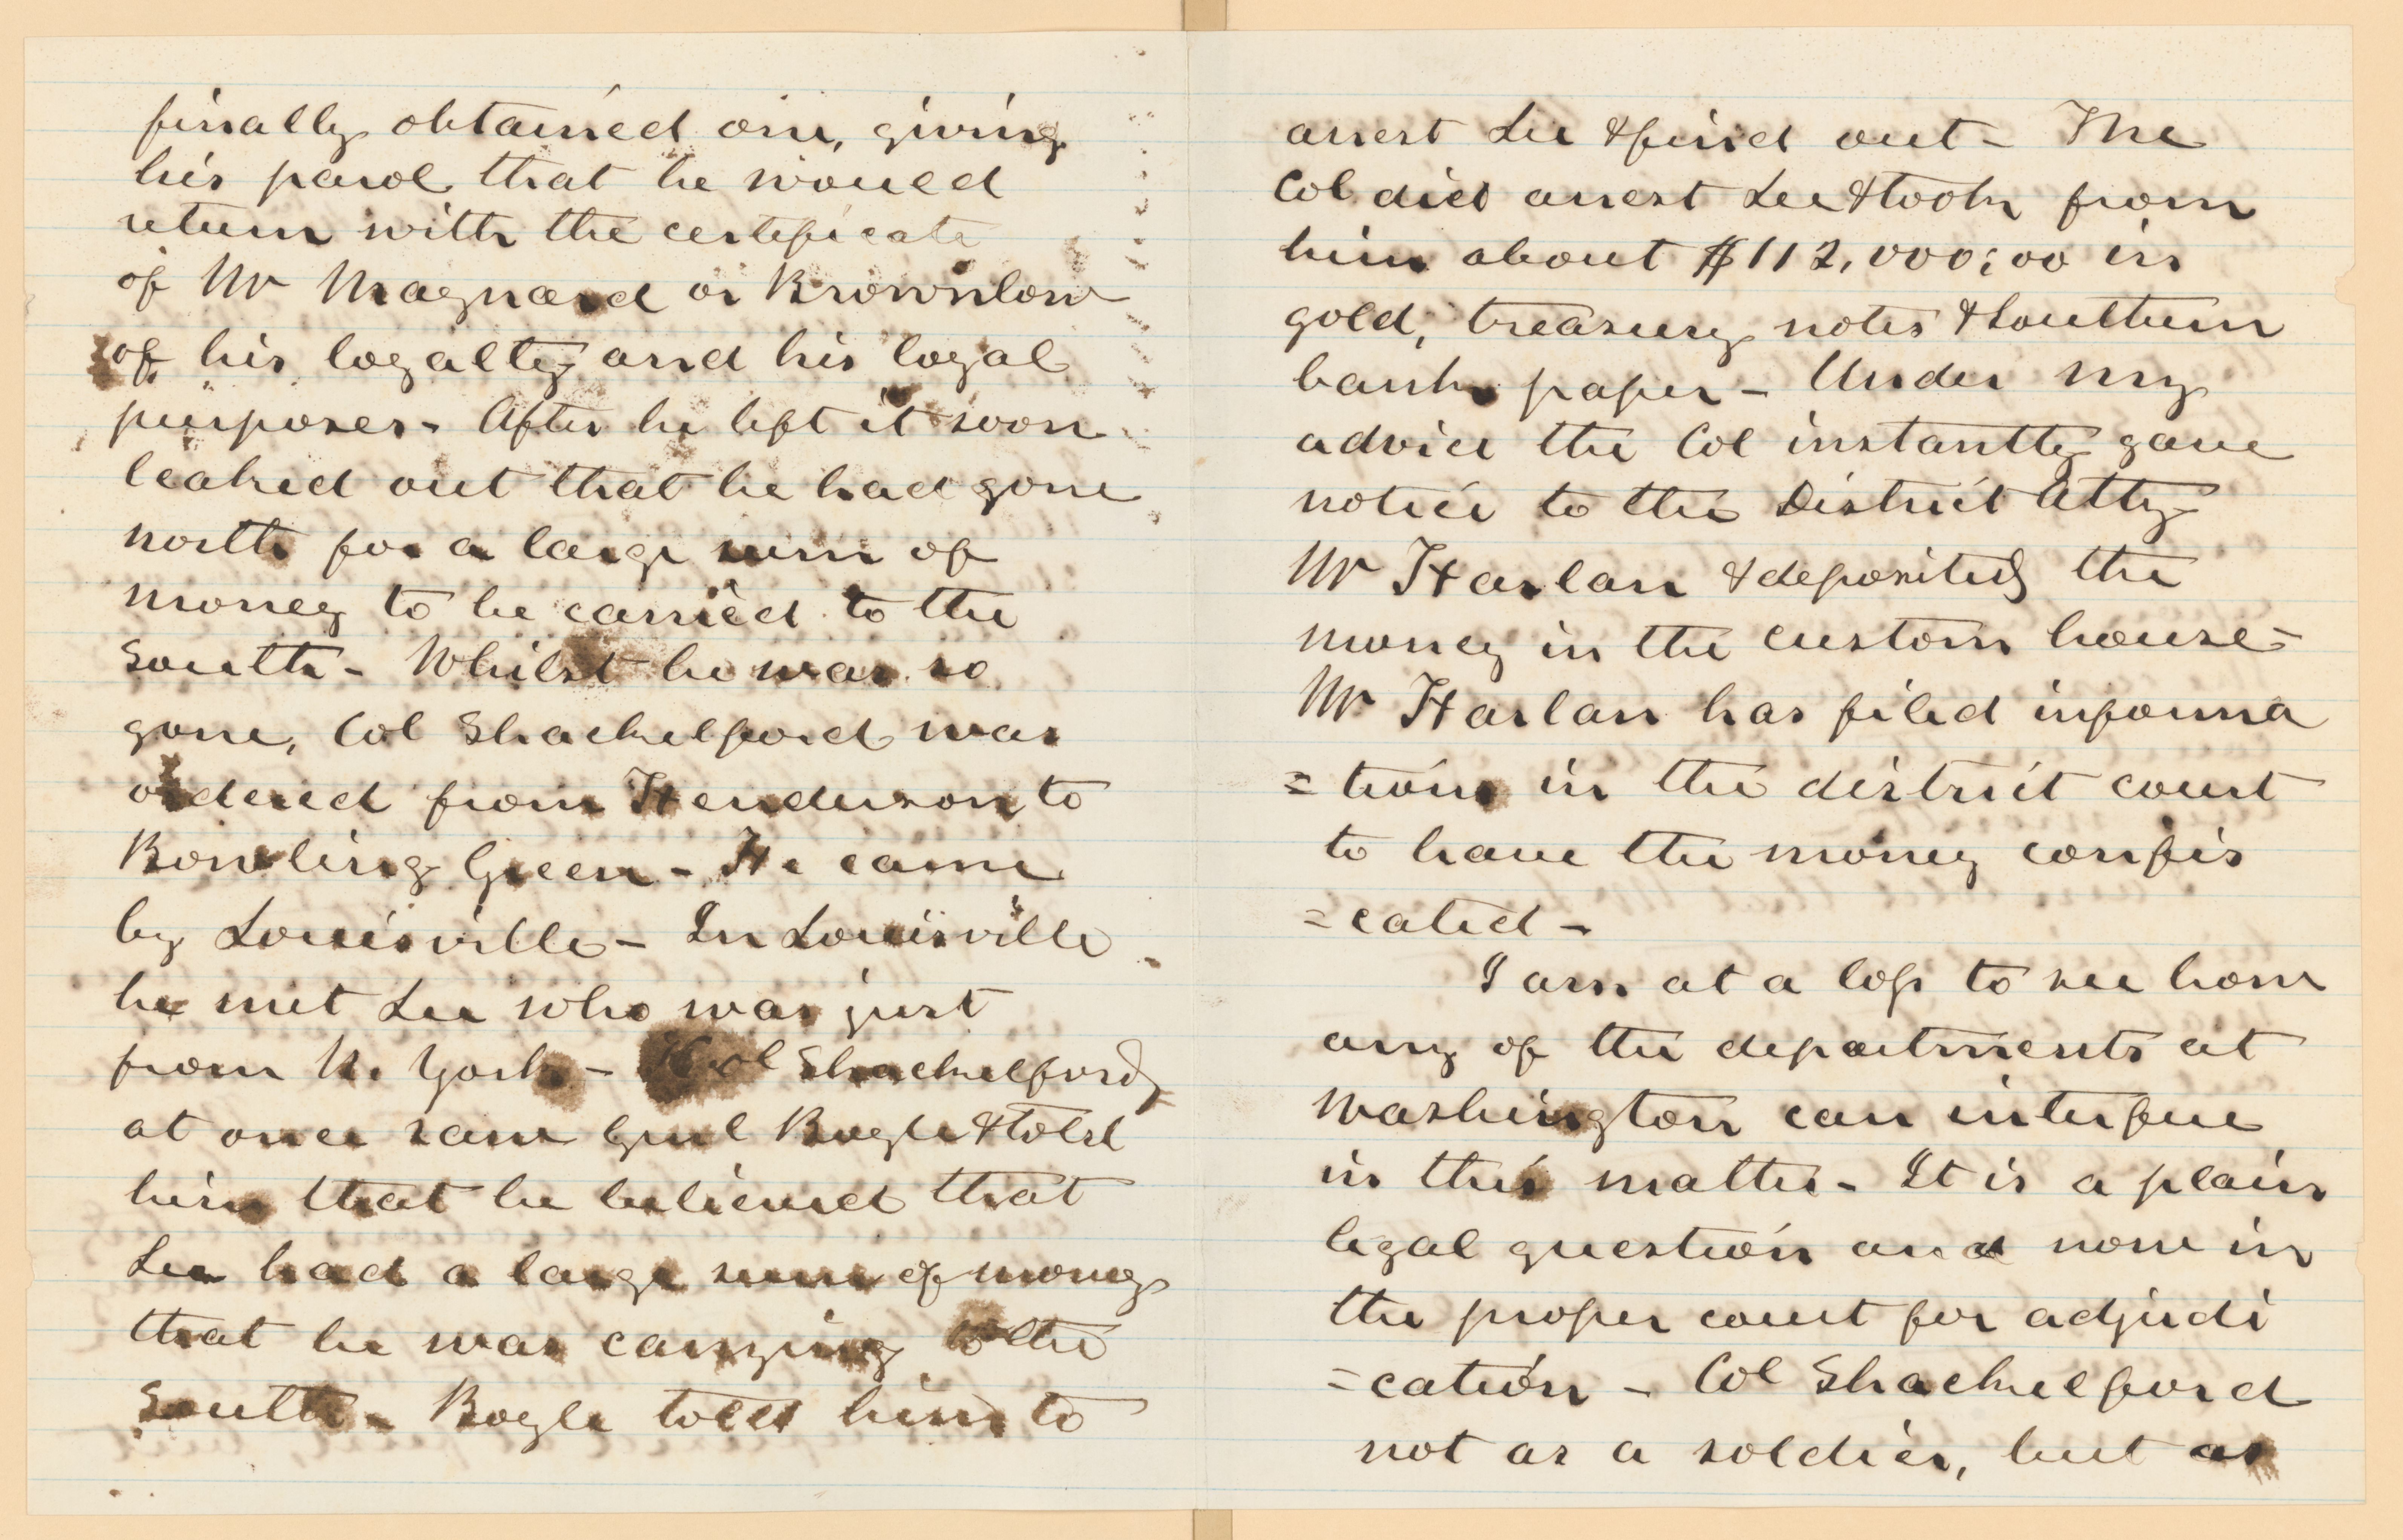 finally obtained one, giving
his parol that he would
return with the certificate
of Mr Maynard or Brownlow
of his loyalty and his loyal
purposes - After he left it soon
leaked out that he had gone
north for a large sum of
money to be carried to the
South - Whilst he was so
gone, Col Shackelford was
ordered from Henderson to
Bowling Green - He came
by Louisville - In Louisville
he met Lee who was just
from N. York - Col Shackelford
at once saw Genl Bogle & told
him that he believed that
Lee had a large sum of money
that he was carrying to the
South - Bogle told him to
arrest Lee & find out - The
Col did arrest Lee & took from
him about $112,000,00 in
gold, treasury notes & Southern
bank paper - Under my
advice the Col instantly gave
notice to the District Atty
Mr Harlan & deposited the
money in the custom house -
Mr Harlan has filed informa
=tion in the district court
to have the money confis
=cated -
I am at a loss to see how
any of the departments at
Washington can interfere
in this matter - It is a plain
legal question and now in
the proper court for adjudi
=cation - Col Shackelford
not as a soldier, but as